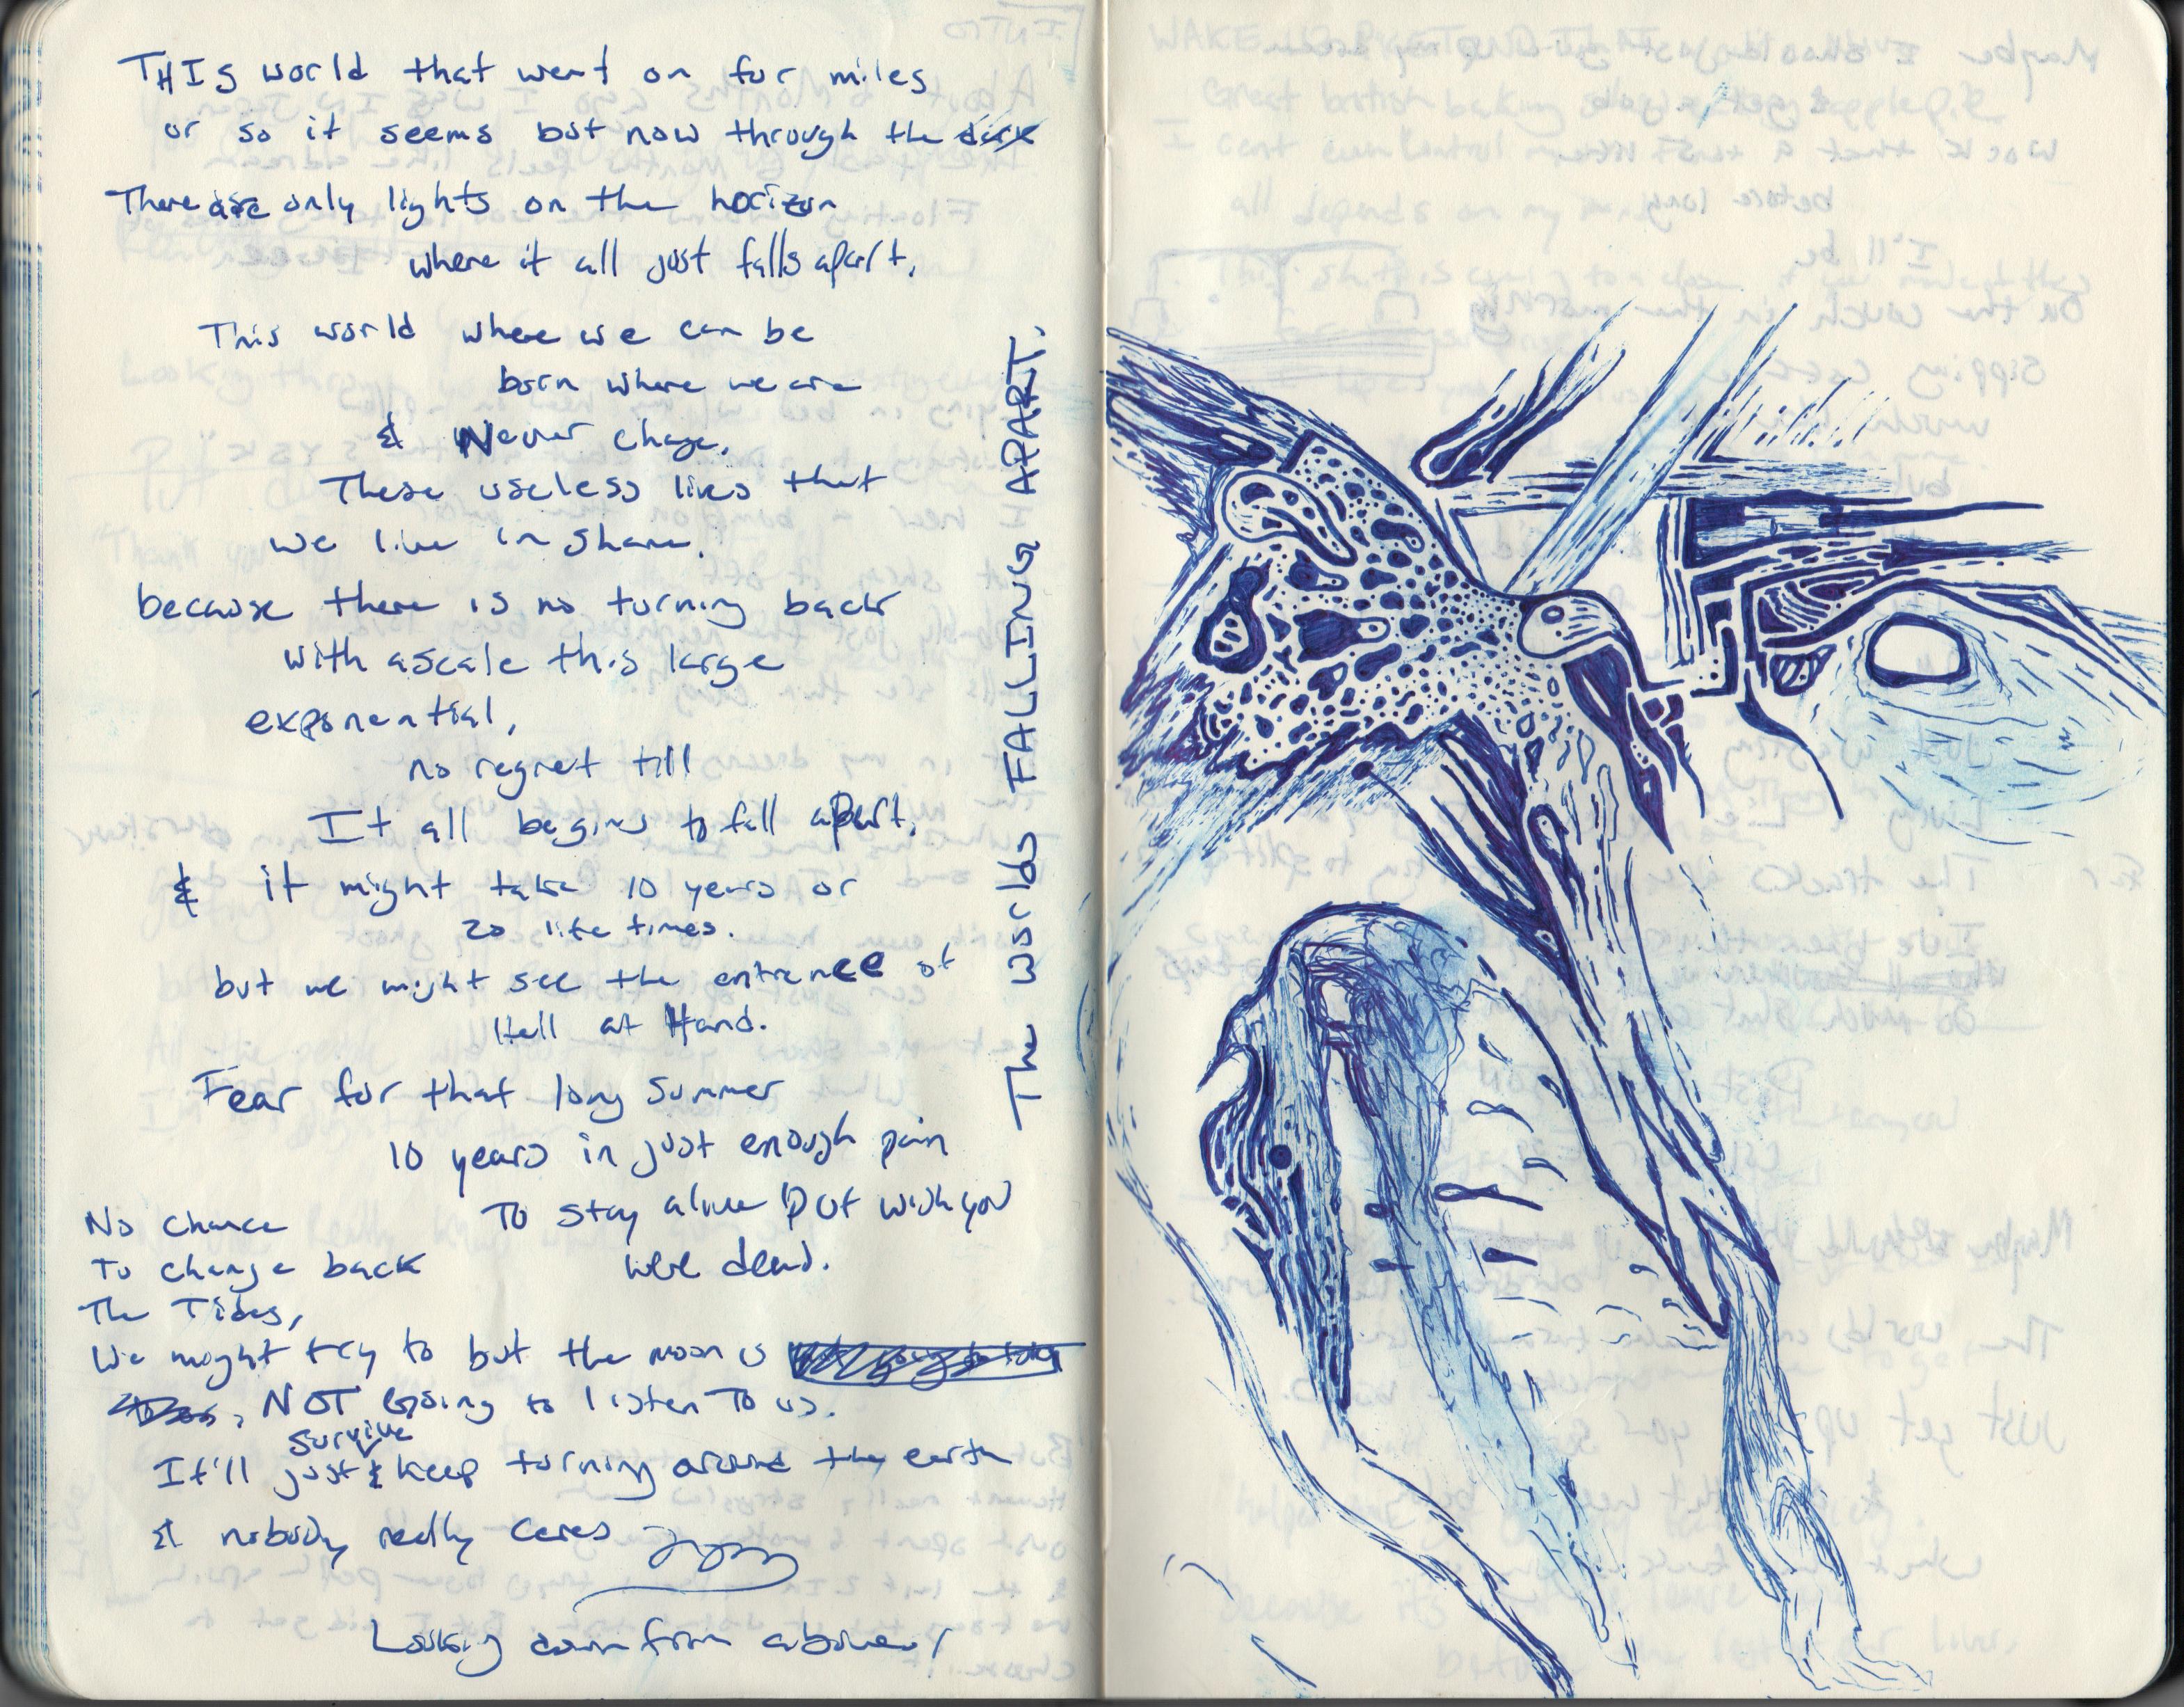 THIS world that went on for miles
or so it seems but now through the dark
There are only lights on the horizon
where it all just falls apart.
This world where we can be
born where we are
& Never change.
These useless lives that
we live in shame.
because there is no turning back
with a scale this large
exponential,
no regret till
It all begins to fall apart.
& it might take 10 years or
20 life times.
but we might see the entrance of
Hell at Hand.
Fear for that long summer
10 years in just enough pain
To stay alive but wish you
were dead.
No chance
To change back
The Tides,
We might try to but the moon is
NOT Going to listen To us.
survive
It'll just & keep turning around the earth
& nobody really cares
Looking down from above!
The worlds FALLING APART.